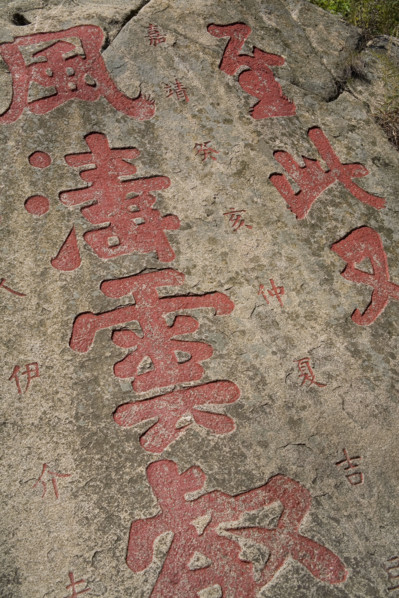 至此
嘉靖癸亥仲夏吉
風濤雲
伊介